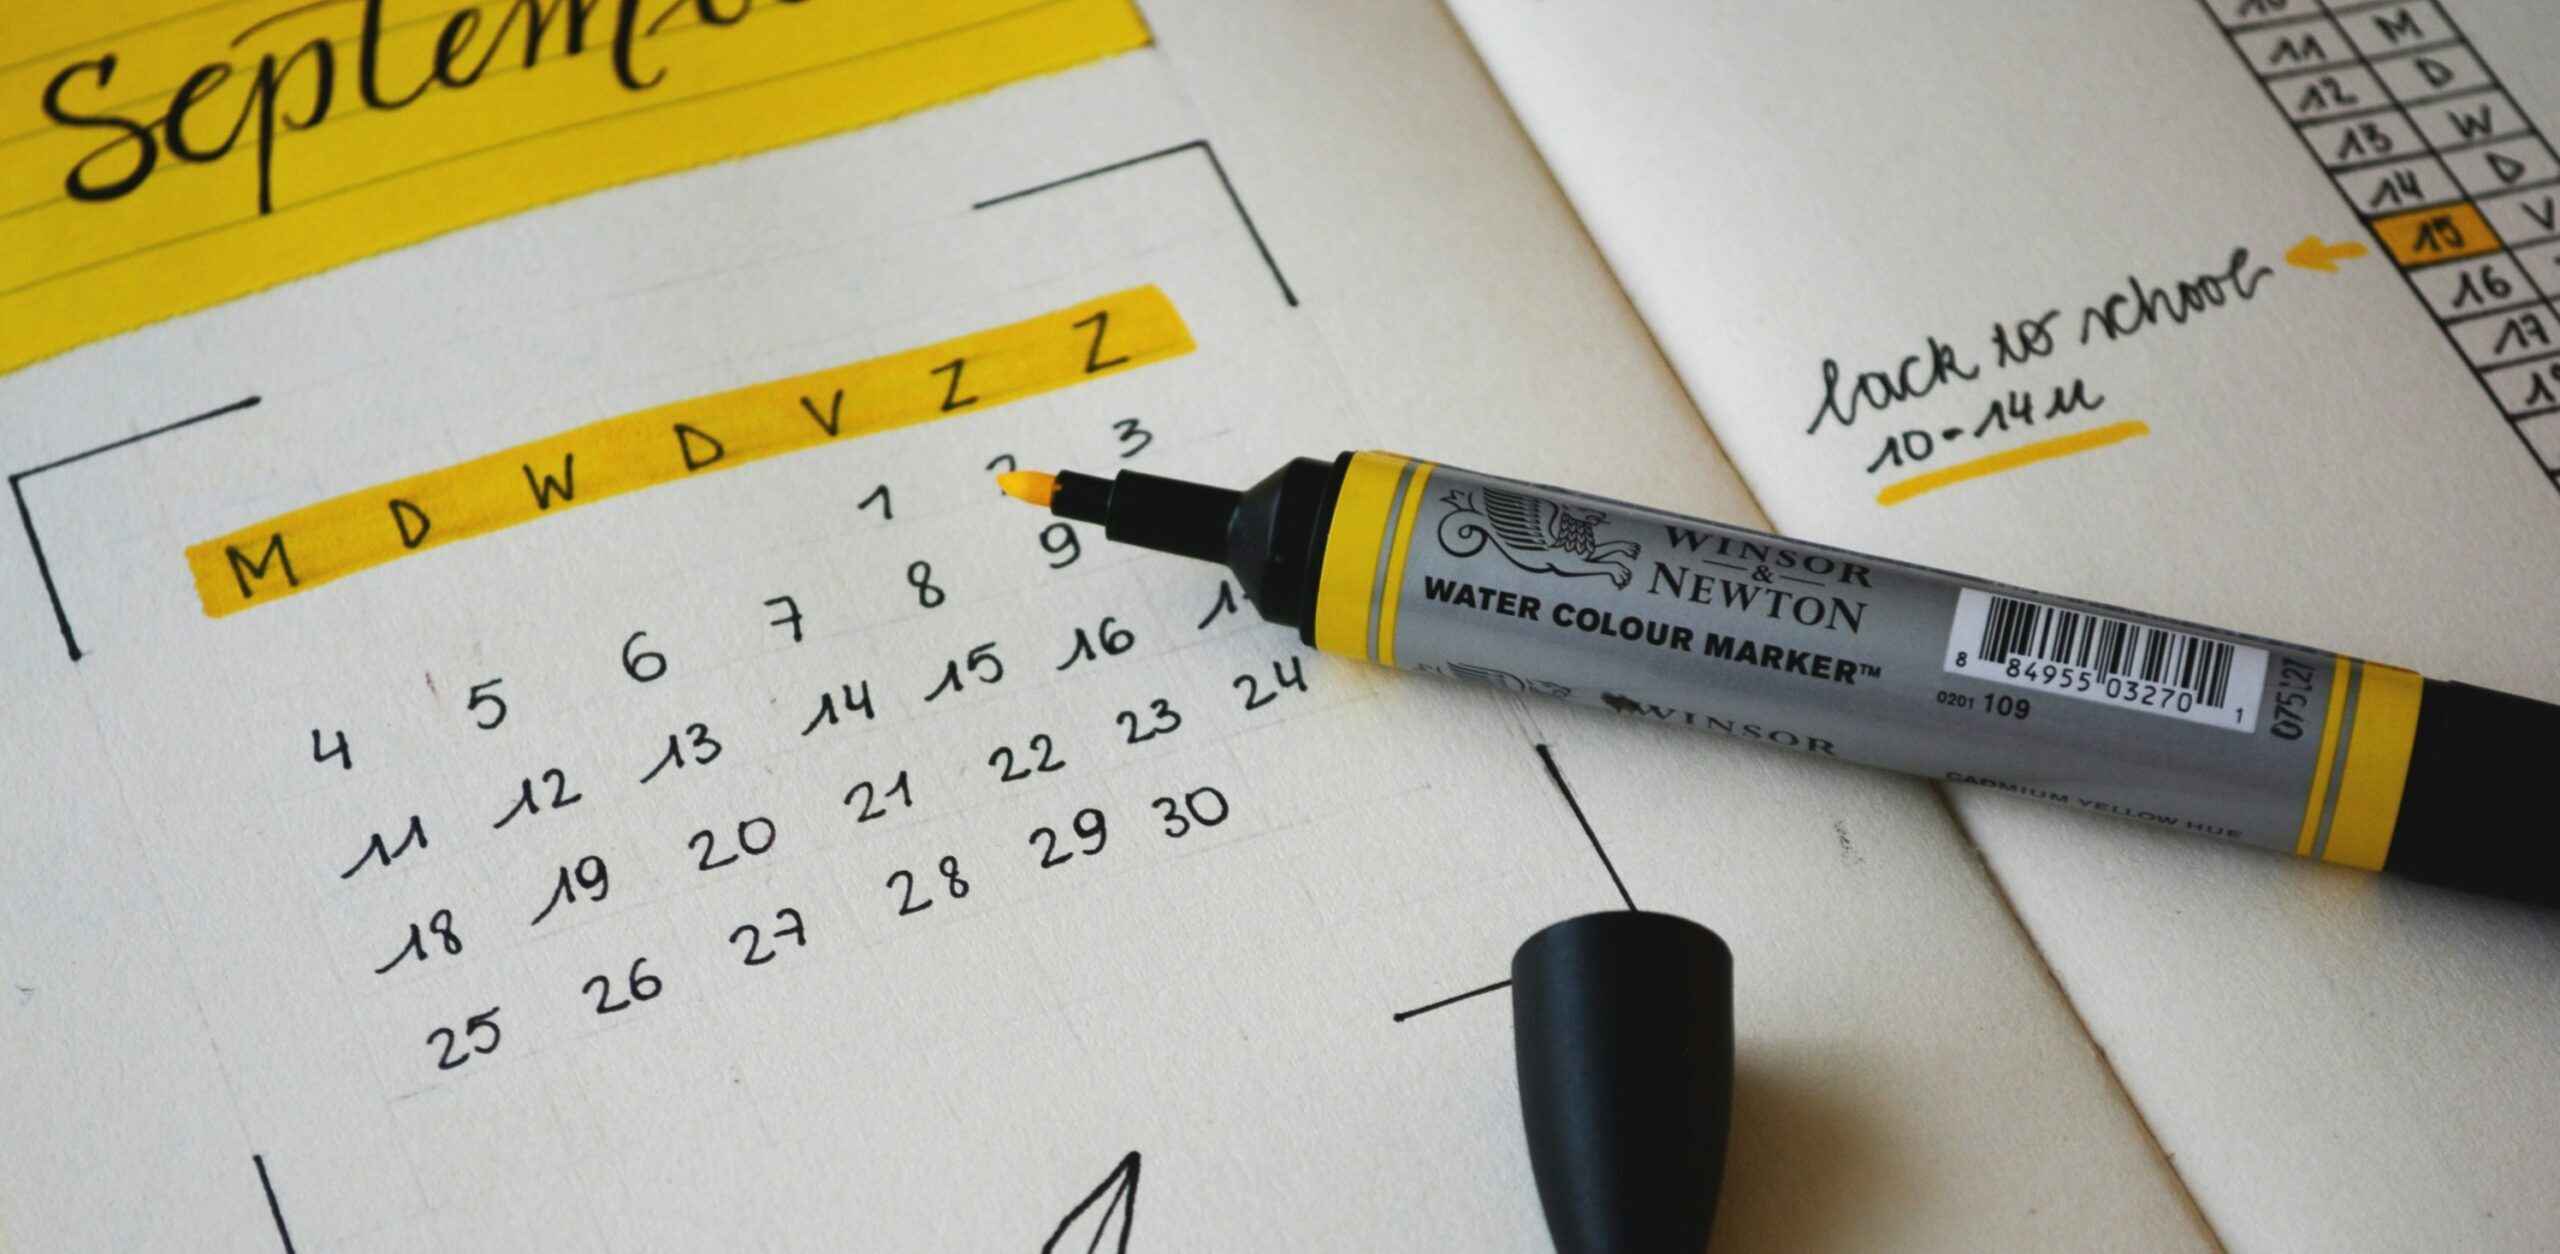 M D W D V Z Z
1 3
4 5 6 7 8 9
11 12 13 14 15 16
18 19 20 21 22 23 24
25 26 27 28 29 30
11 D
12 W
13 D
14 V
15
16
17
back to school
10-14u
WINSOR
&
NEWTON
WATER COLOUR MARKER™
8 84955 03270 1
0201 109
075127
WINSOR
CADMIUM YELLOW HUE